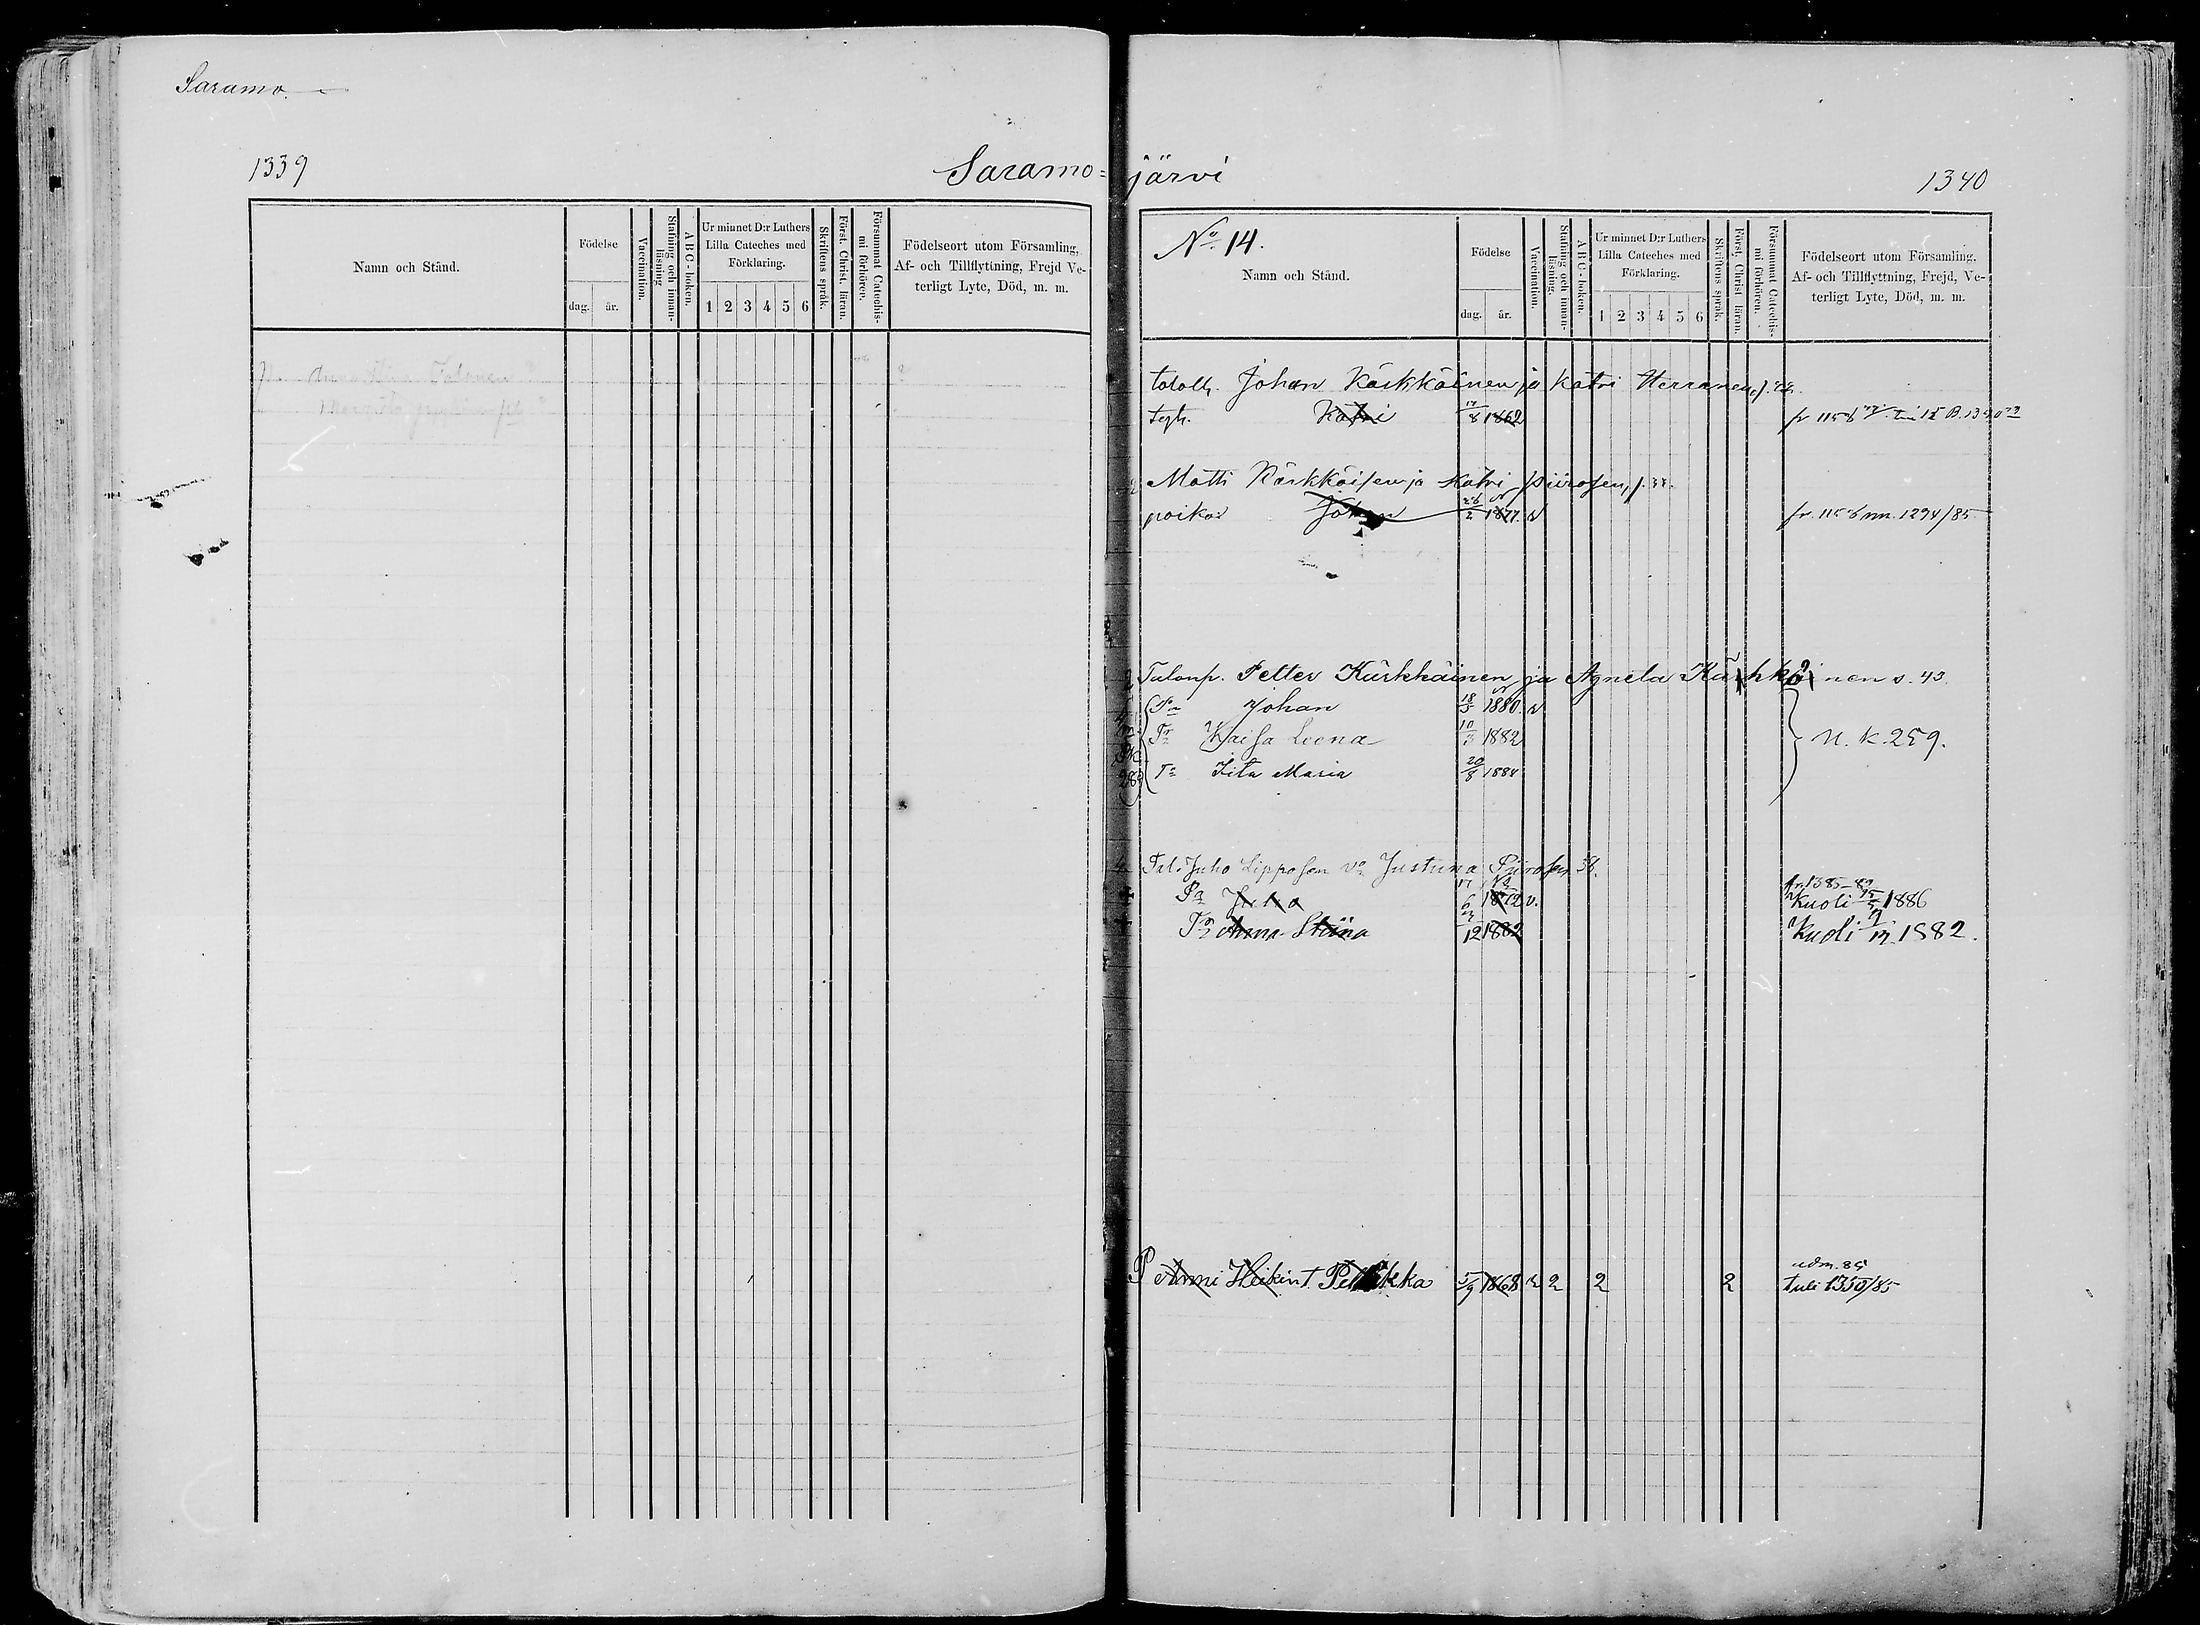 Saramo
1339
Saramo=järvi
1340
Namn och Stånd.
Födelse
dag.
år.
Vaccination.
Stafning och innan-läsning
ABC-boken.
Ur minnet D:r Luthers Lilla Cateches med Förklaring.
1 2 3 4 5 6
Skriftens språk.
Först. Christ. läran.
Försummat Catechis-mi förhören.
Födelseort utom Församling, Af- och Tillflyttning, Frejd Ve-terligt Lyte, Död, m. m.
No 14.
Namn och Stånd.
Födelse
dag.
år.
Vaccination.
Stafning och innan-läsning.
ABC-boken.
Ur minnet D:r Luthers Lilla Cateches med Förklaring.
1 2 3 4 5 6
Skriftens språk.
Först. Christ läran.
Försummat Catechis-mi förhören.
Födelseort utom Församling, Af- och Tillflyttning, Frejd, Ve-terligt Lyte, Död, m. m.
Johan Kärkkäinen ja Katri Herranen
Katri 1862
Matti Kärkkäisen ja Katri Piirosen
poika Johan 26/2 1877 v fr. 1156 1294/85
Talonp. Petter Kärkkäinen ja Agneta Kärhkäinen s. 43.
Pa Johan 18/5 1880 v
Tr Kaisa Leena 10/3 1882 U. K. 259.
Tr Iita Maria 20/8 1884
Tal. Juho Lipposen va Justina Piirosen 36.
Pa Juho 17/6 1872 v. Kuoli 1886
Tr Anna Stiina 12 1882 Kuoli 1882.
P Anni Heikint. 5/9 1868 v 2 2 2 adm. 85
tuli 1350/85